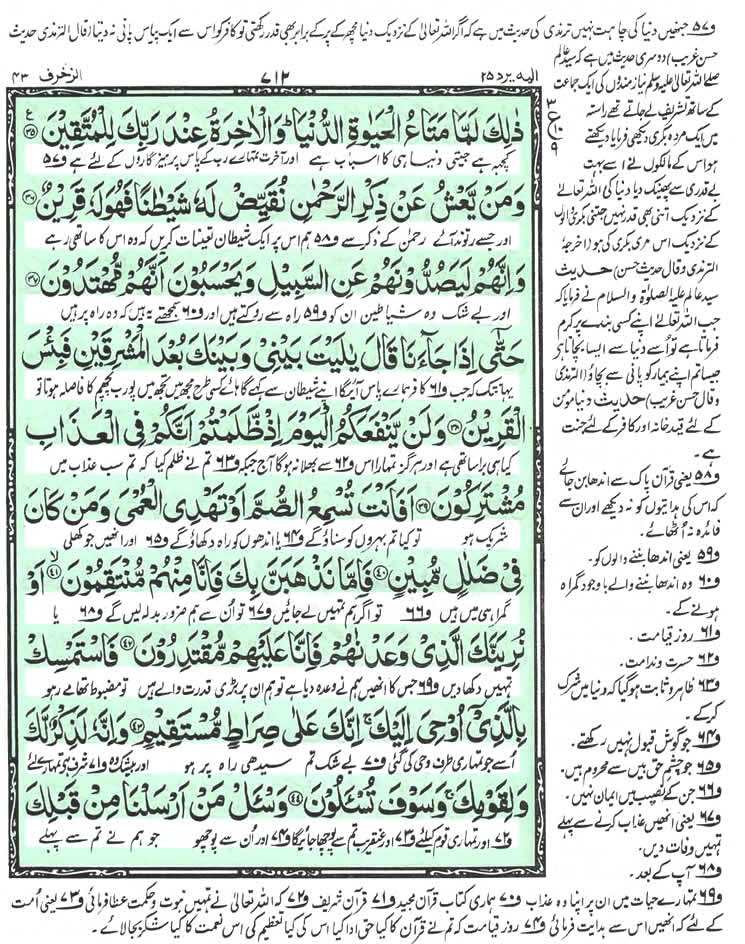 و۵۷ جنھیں دنیا کی چاہت نہیں ترمذی کی حدیث میں ہے کہ اگر اللہ تعالیٰ کے نزدیک دنیا مچھر کے پر کے برابر بھی قدر رکھتی تو کافر کو اس سے ایک پیاس پانی نہ دیتا (قال الترمذی حدیث
حسن غریب) دوسری حدیث میں ہے کہ سید عالم
صلے اللہ تعالیٰ علیہ وسلم نیاز مندوں کی ایک جماعت
کے ساتھ تشریف لے جاتے تھے راستہ
میں ایک مردہ بکری دیکھی فرمایا دیکھتے
ہو اس کے مالکوں نے اسے بہت
بے قدری سے پھینک دیا دنیا کی اللہ تعالےٰ
کے نزدیک اتنی بھی قدر نہیں جتنی بکری والوں
کے نزدیک اس مری بکری کی ہو (اخرجہ
الترمذی وقال حدیث حسن) حدیث
سید عالم علیہ الصلوٰۃ والسلام نے فرمایا کہ
جب اللہ تعالےٰ اپنے کسی بندے پر کرم
فرماتا ہے تو اُسے دنیا سے ایسا بچاتا ہے
جیسا تم اپنے بیمار کو پانی سے بچاؤ (الترمذی
وقال حسن غریب) حدیث دنیا مومن
کے لئے قید خانہ اور کافر کے لئے جنت
ہے۔
و۵۸ یعنی قرآن پاک سے اندھا بن جائے
کہ اس کی ہدایتوں کو نہ دیکھے اور ان سے
فائدہ نہ اُٹھائے۔
و۵۹ یعنی اندھا بننے والوں کو۔
و۶۰ وہ اندھا بننے والے باوجود گمراہ
ہونے کے۔
و۶۱ روز قیامت۔
و۶۲ حسرت وندامت۔
و۶۳ ظاہر وثابت ہوگیا کہ دنیا میں شرک
کرکے۔
و۶۴ جو گوش قبول نہیں رکھتے۔
و۶۵ جو چشم حق بیں سے محروم ہیں۔
و۶۶ جن کے نصیب میں ایمان نہیں۔
و۶۷ یعنی انھیں عذاب کرنے سے پہلے
تمہیں وفات دیں۔
و۶۸ آپ کے بعد۔
الیه یرد ۲۵ ۷۱۲ الزخرف ۴۳
ع ۳ ۱۰ ۹
ذٰلِكَ لَمَّا مَتَاعُ الْحَیٰوةِ الدُّنْیَا ؕ وَالْاٰخِرَةُ عِنْدَ رَبِّكَ لِلْمُتَّقِیْنَ ۳۵ ع
کچھ ہے جیتی دنیا ہی کا اسباب ہے اور آخرت تمہارے رب کے پاس پرہیزگاروں کے لئے ہے و۵۷
وَمَنْ یَّعْشُ عَنْ ذِكْرِ الرَّحْمٰنِ نُقَیِّضْ لَهٗ شَیْطٰنًا فَهُوَ لَهٗ قَرِیْنٌ ۳۶
اور جسے رتوند آئے رحمٰن کے ذکر سے و۵۸ ہم اس پر ایک شیطان تعینات کریں کہ وہ اس کا ساتھی رہے
وَاِنَّهُمْ لَیَصُدُّوْنَهُمْ عَنِ السَّبِیْلِ وَیَحْسَبُوْنَ اَنَّهُمْ مُّهْتَدُوْنَ ۳۷
اور بے شک وہ شیاطین ان کو و۵۹ راہ سے روکتے ہیں اور و۶۰ سمجھتے یہ ہیں کہ وہ راہ پر ہیں
حَتّٰۤی اِذَا جَآءَنَا قَالَ یٰلَیْتَ بَیْنِیْ وَبَیْنَكَ بُعْدَ الْمَشْرِقَیْنِ فَبِئْسَ
یہاں تک کہ جب و۶۱ کافر ہمارے پاس آئیگا اپنے شیطان سے کہے گا ہائے کسی طرح مجھ میں تجھ میں پورب پچھم کا فاصلہ ہوتا تو
الْقَرِیْنُ ۳۸ وَلَنْ یَّنْفَعَكُمُ الْیَوْمَ اِذْ ظَّلَمْتُمْ اَنَّكُمْ فِی الْعَذَابِ
کیا ہی برا ساتھی ہے اور ہرگز تمہارا اس و۶۲ سے بھلا نہ ہوگا آج جبکہ و۶۳ تم نے ظلم کیا کہ تم سب عذاب میں
مُشْتَرِكُوْنَ ۳۹ اَفَاَنْتَ تُسْمِعُ الصُّمَّ اَوْ تَهْدِی الْعُمْیَ وَمَنْ كَانَ
شریک ہو تو کیا تم بہروں کو سناؤ گے و۶۴ یا اندھوں کو راہ دکھاؤ گے و۶۵ اور انھیں جو کھلی
فِیْ ضَلٰلٍ مُّبِیْنٍ ۴۰ فَاِمَّا نَذْهَبَنَّ بِكَ فَاِنَّا مِنْهُمْ مُّنْتَقِمُوْنَ ۙ۴۱ اَوْ
گمراہی میں ہیں و۶۶ تو اگر ہم تمہیں لے جائیں و۶۷ تو اُن سے ہم ضرور بدلہ لیں گے و۶۸ یا
نُرِیَنَّكَ الَّذِیْ وَعَدْنٰهُمْ فَاِنَّا عَلَیْهِمْ مُّقْتَدِرُوْنَ ۴۲ فَاسْتَمْسِكْ
تمہیں دکھا دیں و۶۹ جس کا انھیں ہم نے وعدہ دیا ہے تو ہم ان پر بڑی قدرت والے ہیں تو مضبوط تھامے رہو
بِالَّذِیْۤ اُوْحِیَ اِلَیْكَ ۚ اِنَّكَ عَلٰی صِرَاطٍ مُّسْتَقِیْمٍ ۴۳ وَاِنَّهٗ لَذِكْرٌ لَّكَ
اُسے جو تمہاری طرف وحی کی گئی و۷۰ بے شک تم سیدھی راہ پر ہو اور بیشک وہ و۷۱ شرف ہے تمہارے لئے
وَلِقَوْمِكَ ۚ وَسَوْفَ تُسْـَٔلُوْنَ ۴۴ وَسْـَٔلْ مَنْ اَرْسَلْنَا مِنْ قَبْلِكَ
و۷۲ اور تمہاری قوم کیلئے و۷۳ اور عنقریب تم سے پوچھا جائیگا و۷۴ اور اُن سے پوچھو جو ہم نے تم سے پہلے
و۶۹ تمہارے حیات میں ان پر اپنا وہ عذاب و۷۰ ہماری کتاب قرآن مجید و۷۱ قرآن شریف و۷۲ کہ اللہ تعالیٰ نے تمہیں نبوت وحکمت عطا فرمائی و۷۳ یعنی اُمت
کے لئے کہ انھیں اس سے ہدایت فرمائی و۷۴ روز قیامت کہ تم نے قرآن کا کیا حق ادا کیا اس کی کیا تعظیم کی اس نعمت کا کیا شکر بجالائے۔